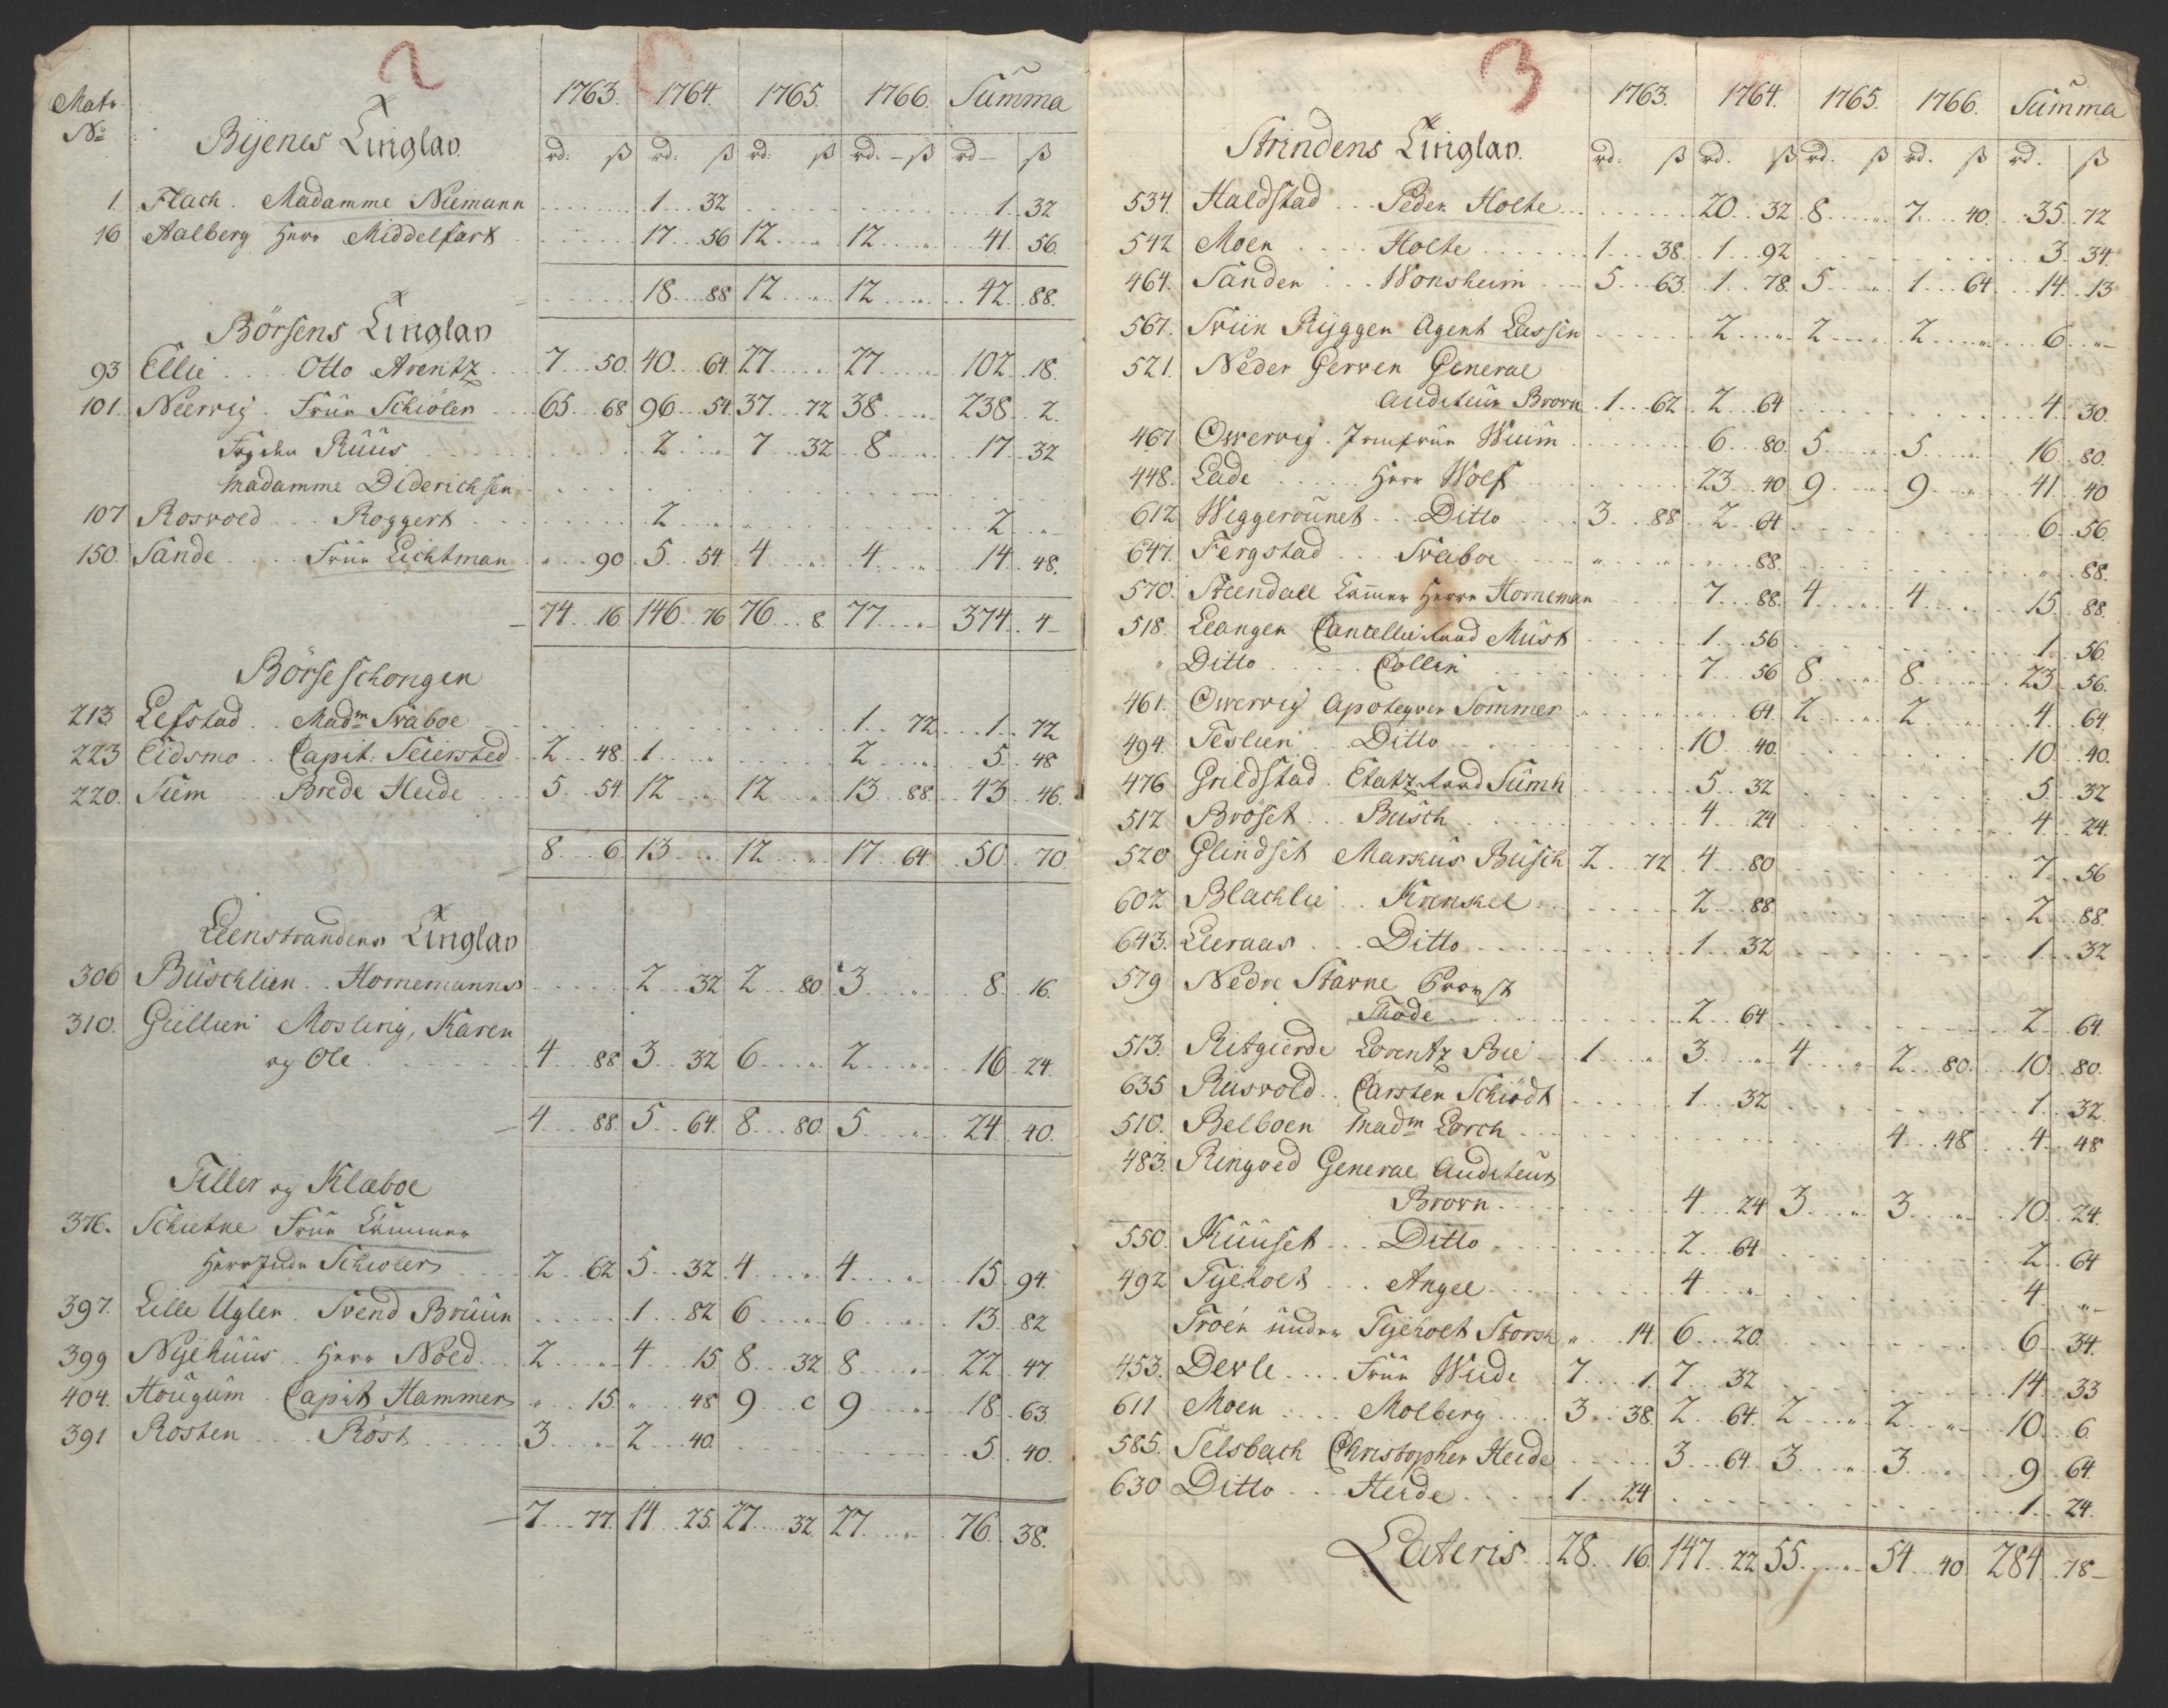 2
Matr. 1763. 1764. 1765. 1766. Summa
No
Bÿenes Tinglav. rd: ß rd: ß rd: ß rd. ß rd ß
1. Flach. Madamme Niemann 1 32 1 32
16 Aalberg Herr Middelfart 17 56 12 " 12 " 41 56.
18 88 12 " 12 " 42 88.
Börsens Tinglav
93 Ellie Otto Arentz 7 50. 40 64. 27 " 27 " 102 18.
101. Neervig. Frue Schiöler 65 68 96 54 37 72 38 " 238 2.
Fogden Rüüs 2 " 7 32 8 " 17 32
Madamme Diderichsen
107 Rosvold Roggert 2 " 2 "
150. Sande Frue Lichtman " 90. 5 54 4 " 4 " 14 48.
74 16 146 76 76 8 77 " 374 4
Börseschongen
213 Lefstad Madm Svaboe 1 72 1 72
223 Eidsmo Capit: Seiersted 2 48. 1 " 2 " 5 48
220. Süm Brede Heide 5 54 12 " 12 " 13 88. 43 46.
8 6. 13 " 12 " 17 64 50 70
Leenstrandens Tinglav
306 Büschlien Hornemanns 2 32 2 80. 3 " 8 16.
310. Giellien Mosling, Karen
og Ole 4 88. 3 32 6 " 2 " 16 24.
4 88. 5 64. 8 80. 5 " 24 40.
Tiller og Klæboe
376. Schietne Frue Cammer
Herr Schiölers 2 62 5 32 4 " 4 " 15 94.
397. Lille Ugler. Svend Brüün 1 82 6 " 6 " 13 82
399 Nÿehüüs Herr Nold 2 " 4 15 8 32 8 " 22 47.
404. Hougum Capit Hammer " 15. " 48 9 " 9 " 18 63.
391 Rosten Röst 3 " 2 40. 5 40.
7 77. 14 25. 27 32 27 " 76 38.
3
1763. 1764. 1765. 1766. Summa
Strindens Tinglav. rd: ß rd. ß rd. ß rd. ß rd. ß
534. Haldstad Peder Holte 20 32 8 " 7 40. 35 72
542 Moen Holte 1 38. 1 92 3 34.
464. Sanden Wonsheim 5 63. 1 78. 5 " 1 64 14 13
567. Sviin Rÿggen Agent Lassen 2 " 2 " 2 " 6 "
521. Neder Gerven General
Auditeur Brovn 1 62 2 64 4 30.
467 Owervig. Jomfrue Wiüm 6 80. 5 " 5 " 16 80.
448. Lade Herr Wolf 23 40 9 " 9 " 41 40
612 Weggerounet Ditto 3 88 2 64 6 56.
647. Fergstad Svaboe " " " 88. " 88.
570. Steendall Cammer Herre Horneman 7 88. 4 " 4 " 15 88.
518. Leangen Cancellieraad Must 1 56 1 56.
" Ditto Collin 7 56 8 " 8 " 23 56.
461. Owervig Apoteqver Sommer " " " 64. 2 " 2 " 4 64.
494. Teslien Ditto 10 40. 10 40.
476 Grildstad Etatzraad Sümh 5 32 5 32
512 Bröset Busch 4 24 4 24.
520 Glindset Markus Busch 2 72 4 80 7 56
602 Blachlie Krenkel 2 88. 2 88.
643. Leeraas Ditto 1 32 1 32
579 Nedre Stavne Provst
Thode 2 64 2 64.
513. Ritgierde Lorentz Bie 1 " 3 " 4 " 2 80. 10 80.
635 Riisvold Carsten Schiödt 1 32 1 32.
510. Belboen Madm Lorch 4 48 4 48
483. Ringved General Auditeur
Brovn 4 24 3 " 3 " 10 24.
550. Küüset Ditto 2 64 2 64
492 Tÿeholt Angel 4 " 4 "
Troen under Tÿeholt Storch " 14. 6 20. 6 34.
453. Devle Frue Wiide 7 1. 7 32 14 33
611 Moen Molberg 3 38. 2 64. 2 " 2 " 10 6
585. Selsbach Christopher Heide 3 64. 3 " 3 " 9 64.
630 Ditto Heide 1 24 1 24.
Lateris 28 16. 147 22 55 " 54 40 284 78